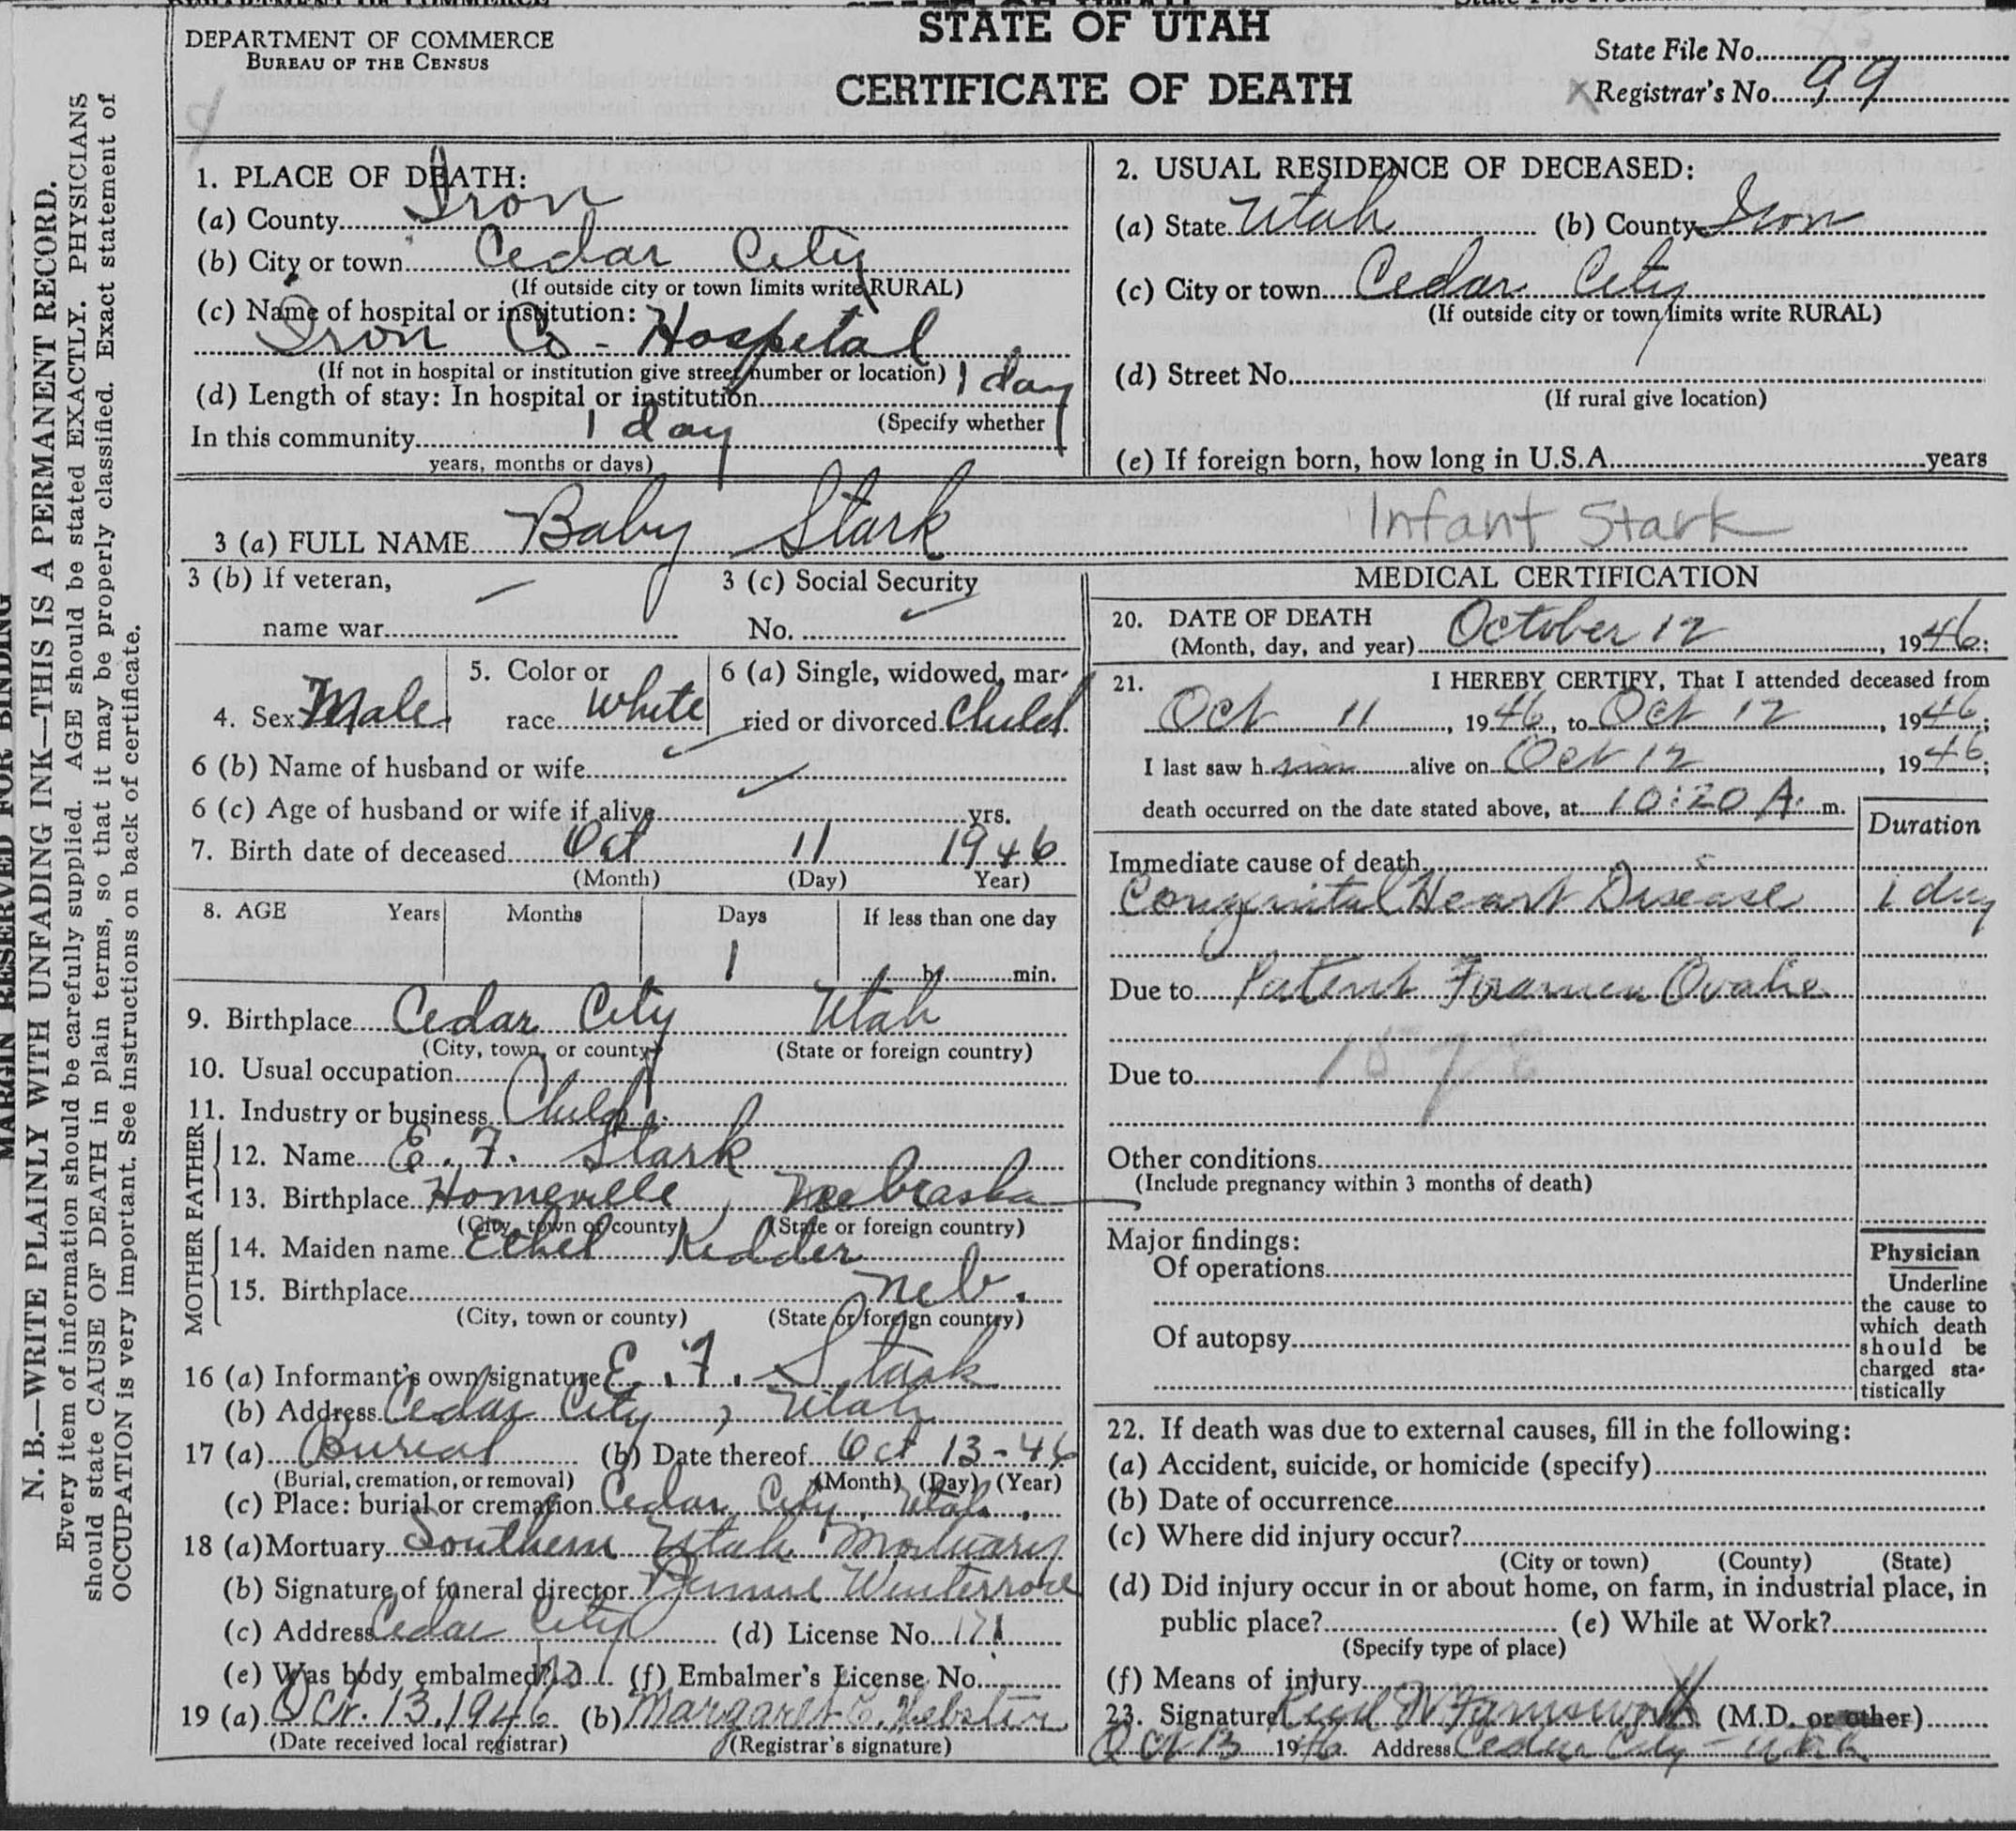 DEPARTMENT OF COMMERCE
BUREAU OF THE CENSUS
STATE OF UTAH
CERTIFICATE OF DEATH
State File No.
Registrar's No. 99
MARGIN RESERVED FOR BINDING
N. B.—WRITE PLAINLY WITH UNFADING INK—THIS IS A PERMANENT RECORD.
Every item of information should be carefully supplied. AGE should be stated EXACTLY. PHYSICIANS
should state CAUSE OF DEATH in plain terms, so that it may be properly classified. Exact statement of
OCCUPATION is very important. See instructions on back of certificate.
1. PLACE OF DEATH:
(a) County Iron
(b) City or town Cedar City
(If outside city or town limits write RURAL)
(c) Name of hospital or institution:
Iron Co - Hospital
(If not in hospital or institution give street number or location)
(d) Length of stay: In hospital or institution 1 day
(Specify whether
In this community 1 day
years, months or days)
2. USUAL RESIDENCE OF DECEASED:
(a) State Utah (b) County Iron
(c) City or town Cedar City
(If outside city or town limits write RURAL)
(d) Street No.
(If rural give location)
(e) If foreign born, how long in U.S.A. years
3 (a) FULL NAME Baby Stark Infant Stark
3 (b) If veteran,
name war
3 (c) Social Security
No.
4. Sex Male
5. Color or
race White
6 (a) Single, widowed, mar-
ried or divorced Child
6 (b) Name of husband or wife
6 (c) Age of husband or wife if alive yrs.
7. Birth date of deceased Oct 11 1946
(Month) (Day) Year)
8. AGE Years Months Days If less than one day
1 hr. min.
9. Birthplace Cedar City Utah
(City, town, or county) (State or foreign country)
10. Usual occupation
11. Industry or business Child
FATHER
12. Name E. F. Stark
13. Birthplace Homeville, Nebraska
(City, town or county) (State or foreign country)
MOTHER
14. Maiden name Ethel Kidder
15. Birthplace Neb.
(City, town or county) (State or foreign country)
16 (a) Informant's own signature E. F. Stark
(b) Address Cedar City, Utah
17 (a) Burial (b) Date thereof Oct 13-46
(Burial, cremation, or removal) (Month) (Day) (Year)
(c) Place: burial or cremation Cedar City, Utah.
18 (a) Mortuary Southern Utah Mortuary
(b) Signature of funeral director
(c) Address Cedar City (d) License No. 171
(e) Was body embalmed? no (f) Embalmer's License No.
19 (a) Oct. 13, 1946 (b) Margaret C. Webster
(Date received local registrar) (Registrar's signature)
MEDICAL CERTIFICATION
20. DATE OF DEATH
(Month, day, and year) October 12, 1946;
21. I HEREBY CERTIFY, That I attended deceased from
Oct 11, 1946, to Oct 12, 1946;
I last saw him alive on Oct 12, 1946;
death occurred on the date stated above, at 10:20 A. m.
Duration
Immediate cause of death
Congenital Heart Disease 1 day
Due to Patent Foramen Ovale
Due to
Other conditions
(Include pregnancy within 3 months of death)
Major findings:
Of operations
Of autopsy
Physician
Underline
the cause to
which death
should be
charged sta-
tistically
22. If death was due to external causes, fill in the following:
(a) Accident, suicide, or homicide (specify)
(b) Date of occurrence
(c) Where did injury occur?
(City or town) (County) (State)
(d) Did injury occur in or about home, on farm, in industrial place, in
public place? (e) While at Work?
(Specify type of place)
(f) Means of injury
23. Signature Reed W Farnsworth (M.D. or other)
Oct 13 1946. Address Cedar City - Utah